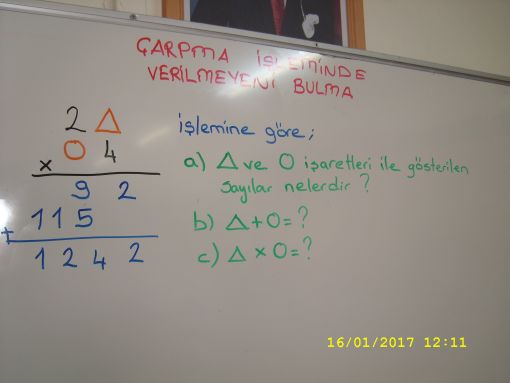 ÇARPMA İŞLEMİNDE
VERİLMEYENİ BULMA
2 △
× O 4
9 2
+ 1 1 5
1 2 4 2
işlemine göre;
a) △ ve O işaretleri ile gösterilen
sayılar nelerdir ?
b) △ + O = ?
c) △ × O = ?
16/01/2017 12:11